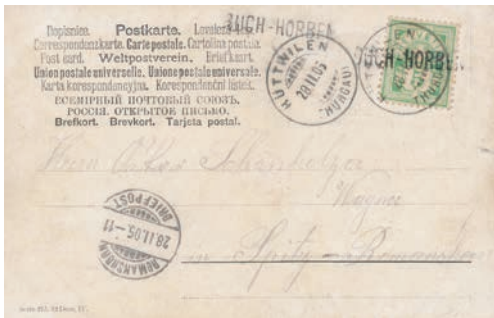 BUCH-HORBEN
Dopisnica. Postkarte. Levelező
Correspondenzkarte. Carte postale. Cartolina postale.
Post card. Weltpostverein. Briefkaart.
Union postale universelle. Unione postale universale.
Karta korespondencyjna. Korespondenční lístek.
ВСЕМІРНЫЙ ПОЧТОВЫЙ СОЮЗЪ.
РОССІЯ. ОТКРЫТОЕ ПИСЬМО.
Brefkort. Brevkort. Tarjeta postal.
HÜTTWILEN
28.II.05
(THURGAU)
BUCH-HORBEN
HÜTTWILEN
(THURGAU)
Herrn Schönholzer
Wagner
in Spitz-Romanshorn
BRIEFPOST
28.II.05.-11
ROMANSHORN